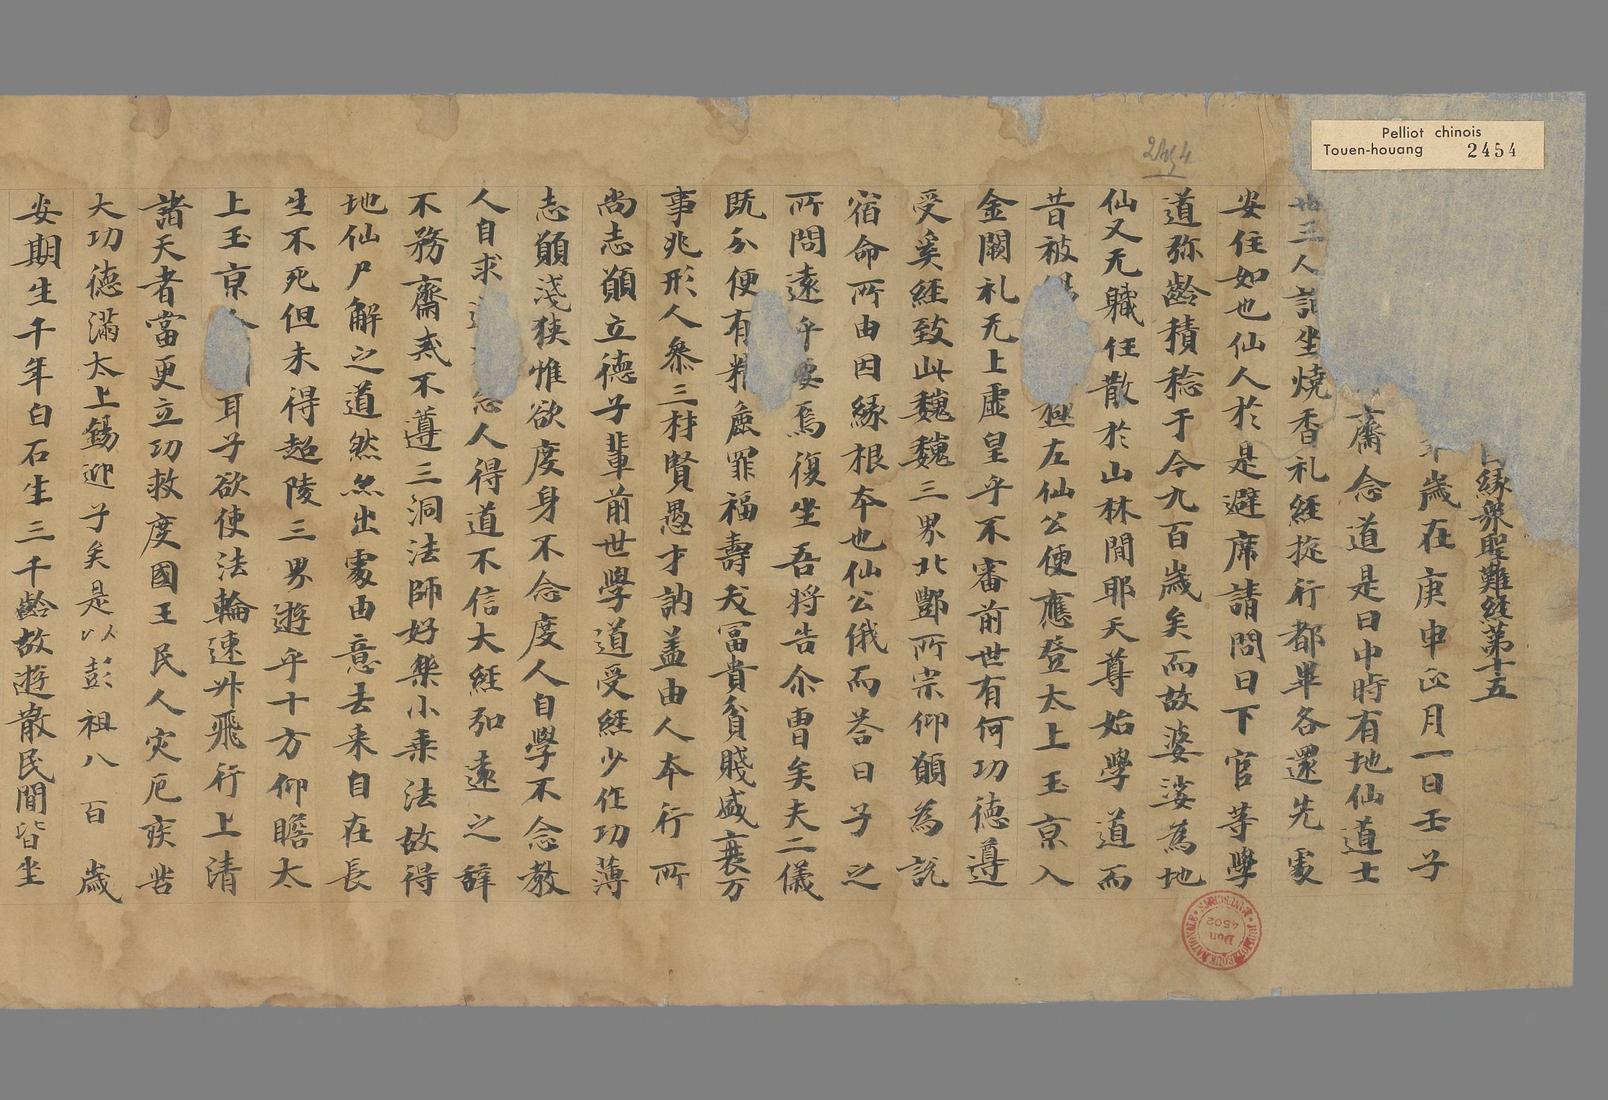 Pelliot chinois
Touen-houang 2454
2454
縁衆聖難經第十五
歲在庚申正月一日壬子
齋念道是日中時有地仙道士
三人詣坐燒香礼經旋行都畢各還先處
安住如也仙人於是避席請問曰下官等學
道弥齡積稔于今九百歲矣而故婆娑為地
仙又无軄任散於山林間耶天尊始學道而
昔被左仙公便應登太上玉京入
金闕礼无上虛皇乎不審前世有何功德遵
受奚經致此巍巍三界北酆所宗仰願為説
宿命所由因緣根本也仙公俄而荅曰子之
所問遠乎要焉復坐吾將告尒曹矣夫二儀
既分便有精麁罪福壽夭冨貴貧賤盛衰万
事兆形人叅三材賢愚才訥盖由人本行所
尚志願立德子輩前世學道受經少作功薄
志願淺狭惟欲度身不念度人自學不念教
人自求人得道不信大經弘遠之辭
不務齋戒不遵三洞法師好樂小乗法故得
地仙尸解之道然亦出處由意去来自在長
生不死但未得超陵三界遊乎十方仰瞻太
上玉京耳子欲使法輪速升飛行上清
諸天者當更立功救度國王民人灾厄疾苦
大功德滿太上錫迎子矣是以彭祖八百歲
安期生千年白石生三千齡故遊散民間皆坐
BIBLIOTHEQUE NATIONALE MANUSCRITS
Don
4502